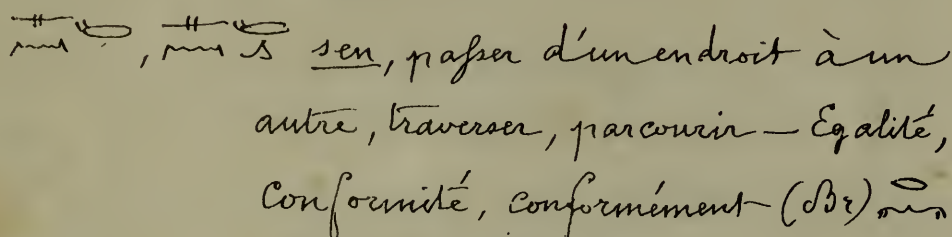 sen, paſser d'un endroit à un
autre, traverser, parcourir — Egalité,
conformité, conformément (Br) 𓂋𓈖